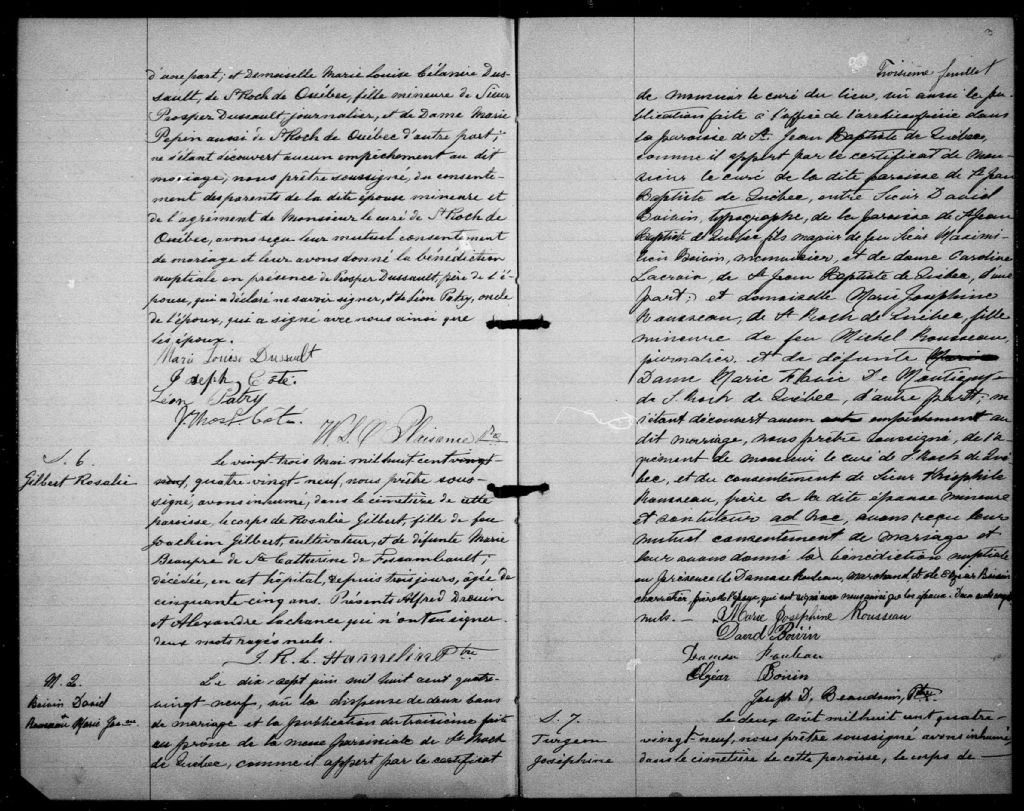 d'une part; et Demoiselle Marie Louise Célanire Dus-
sault, de St Roch de Québec, fille mineure de Sieur
Prosper Dussault, journalier, et de Dame Marie
Pepin aussi de St Roch de Québec d'autre part;
ne s'étant découvert aucun empêchement au dit
mariage, nous prêtre soussigné, du consente-
ment des parents de la dite épouse mineure et
de l'agrément de Monsieur le curé de St Roch de
Québec, avons reçu leur mutuel consentement
de mariage et leur avons donné la bénédiction
nuptiale en présence de Prosper Dussault, père de l'é-
pouse, qui a déclaré ne savoir signer, et de Léon Patry, oncle
de l'époux, qui a signé avec nous ainsi que
les époux.
Marie Louise Dussault
Joseph Côté.
Léon Patry
J. Thos. Coté
Ptre
S. 6.
Gilbert Rosalie
Le vingt trois Mai mil huit cent vingt
neuf, quatre vingt neuf, nous prêtre sous-
signé, avons inhumé, dans le cimetière de cette
paroisse, le corps de Rosalie Gilbert, fille de feu
Joachim Gilbert, cultivateur, et de défunte Marie
Beaupré de Ste Catherine de Fossambault;
décédée, en cet hôpital, depuis trois jours, agée de
cinquante cinq ans. Présents Alfred Drouin
et Alexandre Lachance qui n'ont su signer.
deux mots rayés nuls.
J. R. L. Hamelin Ptre
M. 2.
Boivin David
Rousseau Marie Jos.
Le dix-sept juin mil huit cent quatre-
vingt-neuf, vu la dispense de deux bans
de mariage et la publication du troisième fait
au prône de la messe paroissiale de St Roch
de Québec, comme il appert par le certificat
3
Troisième feuillet
de monsieur le curé du lieu, vu aussi la pu-
blication faite à l'office de l'archiconfrérie dans
la paroisse de St. Jean Baptiste de Québec,
comme il appert par le certificat de Mon-
sieur le curé de la dite paroisse de St Jean
Baptiste de Québec, entre Sieur David
Boivin, typographe, de la paroisse de St Jean
Baptiste de Québec fils majeur de feu Sieur Maximi-
lien Boivin, menuisier, et de dame Caroline
Lacroix de St Jean Baptiste de Québec, d'une
part; et demoiselle Marie Josephine
Rousseau, de St Roch de Québec, fille
mineure de feu Michel Rousseau,
journalier, et de défunte Marie
Dame Marie Flavie De Montigny
de St Roch de Québec, d'autre part; ne
s'étant découvert aucun empêchement au
dit mariage, nous prêtre soussigné, de l'a-
grément de monsieur le curé de St Roch de Qué-
bec, et du consentement de Sieur Théophile
Rousseau, frère de la dite épouse mineure
et son tuteur ad hoc, avons reçu leur
mutuel consentement de mariage et
leur avons donné la bénédiction nuptiale
en présence de Damase Rouleau, marchand, et de Elzéar Boivin
charretier, frère de l'époux, qui ont signé avec nous ainsi que les époux. Deux mots rayés
nuls. —
Marie Joséphine Rousseau
David Boivin
Damase Rouleau
Elzéar Boivin
Joseph D. Beaudoin, Ptre
S. 7.
Turgeon
Joséphine
Le deux Août mil huit cent quatre-
vingt-neuf, nous prêtre soussigné avons inhumé,
dans le cimetière de cette paroisse, le corps de —